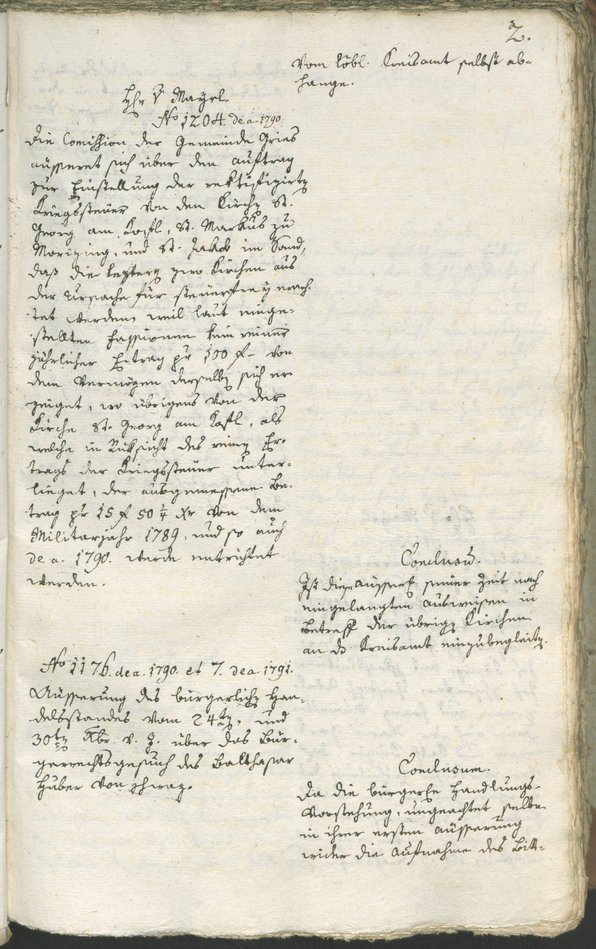 2.
vom löbl. Kreisamt selbst ab-
hange.
Hr. v. Mayrl.
No 1204. de a. 1790.
Die Comißion der Gemeinde Gries
äusseret sich über den auftrag
zur Einstellung der rektifizirtn
Kriegssteuer von den Kirchn St.
Georg am Kofl, St. Markus zu
Morizing, und St. Jakob im Sand,
daß die leztern zwo Kirchen aus
der Ursache für steuerfrey erach-
tet werden, weil laut einge-
stellten Fassionen kein reiner
jährlicher Ertrag pr 100 f. von
dem Vermögen derselbn sich er
zeuget, wo übrigens von der
Kirche St. Georg am Kofl, als
welche in Rüksicht des reinen Er-
trags der Kriegssteuer unter-
lieget, der ausgemessene Be-
trag pr 15 f 50 1/4 xr von dem
Militarjahr 1789, und so auch
de a. 1790. werde entrichtet
werden.
Conclusum.
Ist diese Äusserung seiner Zeit nach
eingelangten ausweisen in
betreff der übrign Kirchen
an das Kreisamt einzubegleitn.
No 1176. de a. 1790. et 7. de a. 1791.
Äusserung des bürgerlichn Han-
delsstandes vom 24tn, und
30tn Xbr. v. J. über das Bür-
gerrechtsgesuch des Balthasar
Huber von Schwaz.
Conclusum.
Da die bürgerle Handlungs-
Vorstehung, ungeachtet selbe
in ihrer ersten äusserung
wider die Aufnahme des Bitt-